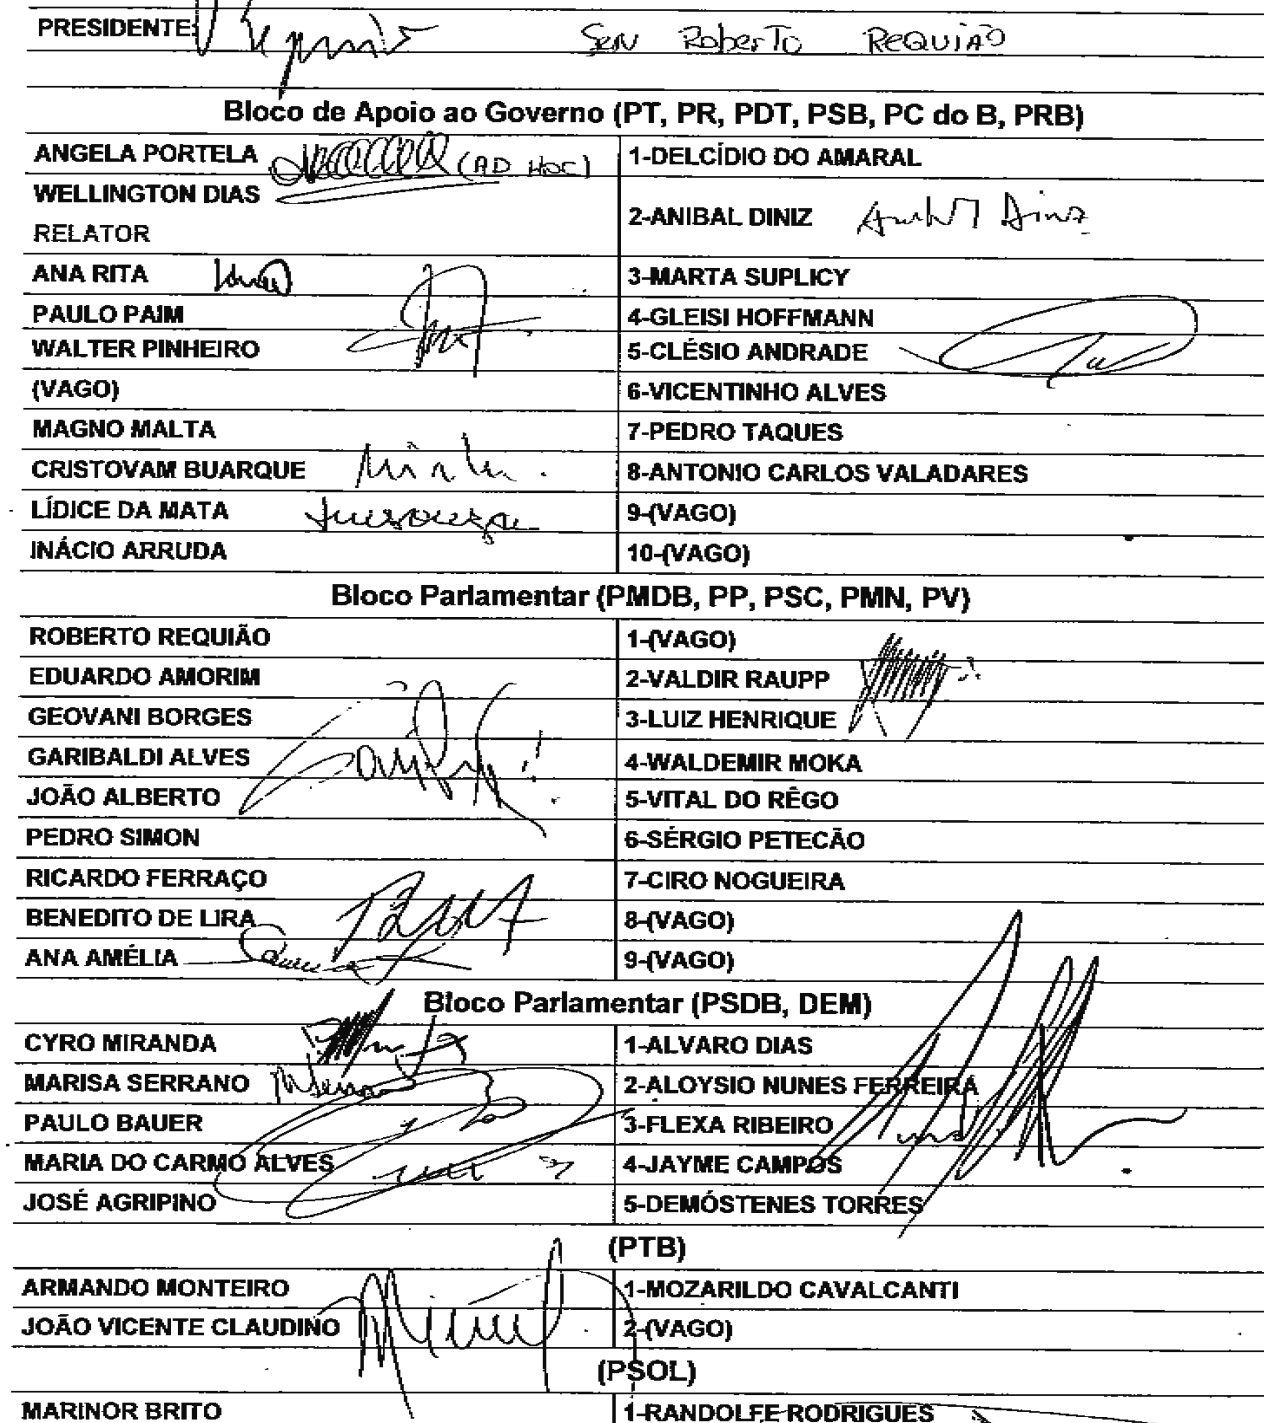 PRESIDENTE: SEN Roberto REQUIÃO
Bloco de Apoio ao Governo (PT, PR, PDT, PSB, PC do B, PRB)
ANGELA PORTELA (AD HOC) 1-DELCÍDIO DO AMARAL
WELLINGTON DIAS
RELATOR
2-ANIBAL DINIZ Anibal Diniz
ANA RITA 3-MARTA SUPLICY
PAULO PAIM 4-GLEISI HOFFMANN
WALTER PINHEIRO 5-CLÉSIO ANDRADE
(VAGO) 6-VICENTINHO ALVES
MAGNO MALTA 7-PEDRO TAQUES
CRISTOVAM BUARQUE 8-ANTONIO CARLOS VALADARES
LÍDICE DA MATA 9-(VAGO)
INÁCIO ARRUDA 10-(VAGO)
Bloco Parlamentar (PMDB, PP, PSC, PMN, PV)
ROBERTO REQUIÃO 1-(VAGO)
EDUARDO AMORIM 2-VALDIR RAUPP
GEOVANI BORGES 3-LUIZ HENRIQUE
GARIBALDI ALVES 4-WALDEMIR MOKA
JOÃO ALBERTO 5-VITAL DO RÊGO
PEDRO SIMON 6-SÉRGIO PETECÃO
RICARDO FERRAÇO 7-CIRO NOGUEIRA
BENEDITO DE LIRA 8-(VAGO)
ANA AMÉLIA 9-(VAGO)
Bloco Parlamentar (PSDB, DEM)
CYRO MIRANDA 1-ALVARO DIAS
MARISA SERRANO 2-ALOYSIO NUNES FERREIRA
PAULO BAUER 3-FLEXA RIBEIRO
MARIA DO CARMO ALVES 4-JAYME CAMPOS
JOSÉ AGRIPINO 5-DEMÓSTENES TORRES
(PTB)
ARMANDO MONTEIRO 1-MOZARILDO CAVALCANTI
JOÃO VICENTE CLAUDINO 2-(VAGO)
(PSOL)
MARINOR BRITO 1-RANDOLFE RODRIGUES